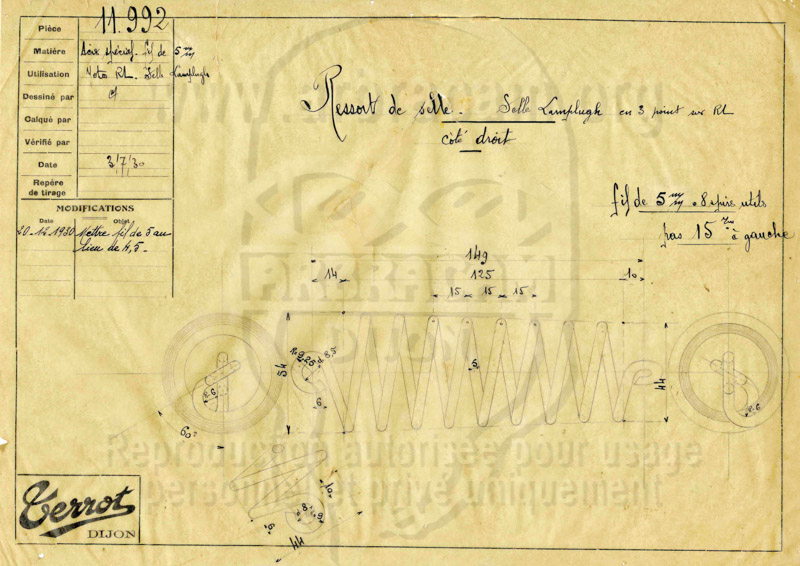 Pièce 11.992
Matière Acier spécial. fil de 5 m/m
Utilisation Moto RL. Selle Lamplugh
Dessiné par
Calqué par
Vérifié par
Date 3/7/30
Repère de tirage
MODIFICATIONS
Date Objet
20-12-1930 Mettre fil de 5 au
lieu de 4,5-
Ressort de selle. Selle Lamplugh en 3 point sur RL
côté droit
fil de 5 m/m 8 spires utiles
pas 15 m/m à gauche
149
14 125 10
15 15 15
54
R.9,25
d.8,5
6
5
44
R.6
60°
R.6
10
8
9
6
44
Terrot
DIJON
www. .org
ARBRACAM
DIJON
Reproduction autorisée pour usage
personnel et privé uniquement